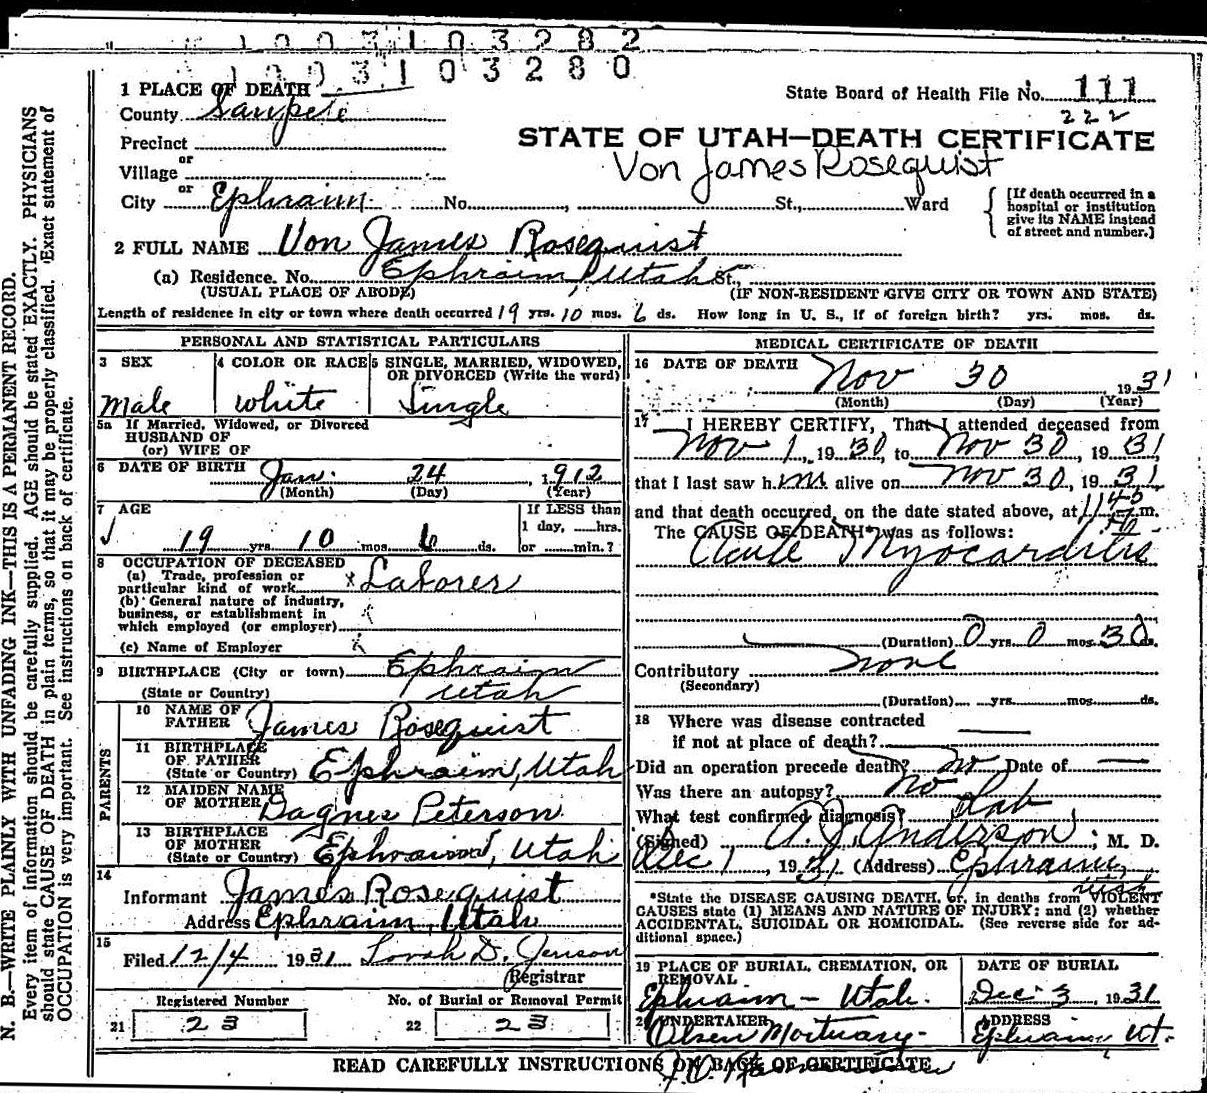 1003103282
1003103280
1 PLACE OF DEATH
State Board of Health File No. 111
County Sanpete
222
Precinct
STATE OF UTAH—DEATH CERTIFICATE
or
Village
Von James Rosequist
or
City Ephraim No. , St., Ward
[If death occurred in a
hospital or institution
give its NAME instead
of street and number.]
2 FULL NAME Von James Rosequist
(a) Residence. No. Ephraim, Utah St.,
(USUAL PLACE OF ABODE) (IF NON-RESIDENT GIVE CITY OR TOWN AND STATE)
Length of residence in city or town where death occurred 19 yrs. 10 mos. 6 ds. How long in U. S., if of foreign birth? yrs. mos. ds.
PERSONAL AND STATISTICAL PARTICULARS
3 SEX
Male
4 COLOR OR RACE
White
5 SINGLE, MARRIED, WIDOWED,
OR DIVORCED (Write the word)
Single
5a If Married, Widowed, or Divorced
HUSBAND OF
(or) WIFE OF
6 DATE OF BIRTH Jan. 24, 1912
(Month) (Day) (Year)
7 AGE
19 yrs. 10 mos. 6 ds.
If LESS than
1 day, hrs.
or min.?
8 OCCUPATION OF DECEASED
(a) Trade, profession or
particular kind of work x Laborer
(b) General nature of industry,
business, or establishment in
which employed (or employer)
(c) Name of Employer
9 BIRTHPLACE (City or town) Ephraim
(State or Country) Utah
PARENTS
10 NAME OF
FATHER James Rosequist
11 BIRTHPLACE
OF FATHER
(State or Country) Ephraim, Utah
12 MAIDEN NAME
OF MOTHER Dagnes Peterson
13 BIRTHPLACE
OF MOTHER
(State or Country) Ephraim, Utah
14
Informant James Rosequist
Address Ephraim, Utah
15
Filed 12/4 1931 D. Jenson
Registrar
Registered Number
21 23
No. of Burial or Removal Permit
22 23
MEDICAL CERTIFICATE OF DEATH
16 DATE OF DEATH Nov 30 1931
(Month) (Day) (Year)
17 I HEREBY CERTIFY, That I attended deceased from
Nov 1, 1930, to Nov 30, 1931
that I last saw him alive on Nov 30, 1931
and that death occurred, on the date stated above, at 1145 m.
The CAUSE OF DEATH* was as follows:
Acute Myocarditis
(Duration) 0 yrs. 0 mos. 30 ds.
Contributory none
(Secondary)
(Duration) yrs. mos. ds.
18 Where was disease contracted
if not at place of death?
Did an operation precede death? no Date of
Was there an autopsy? no
What test confirmed diagnosis? Lab
(Signed) A. J. Anderson, M. D.
Dec 1 1931 (Address) Ephraim,
Utah
*State the DISEASE CAUSING DEATH, or, in deaths from VIOLENT
CAUSES state (1) MEANS AND NATURE OF INJURY; and (2) whether
ACCIDENTAL, SUICIDAL OR HOMICIDAL. (See reverse side for ad-
ditional space.)
19 PLACE OF BURIAL, CREMATION, OR
REMOVAL
Ephraim - Utah.
DATE OF BURIAL
Dec. 3, 1931
20 UNDERTAKER
Olsen Mortuary
ADDRESS
Ephraim, Ut.
READ CAREFULLY INSTRUCTIONS ON BACK OF CERTIFICATE
N. B.—WRITE PLAINLY WITH UNFADING INK—THIS IS A PERMANENT RECORD.
Every item of information should be carefully supplied. AGE should be stated EXACTLY. PHYSICIANS
should state CAUSE OF DEATH in plain terms, so that it may be properly classified. Exact statement of
OCCUPATION is very important. See instructions on back of certificate.